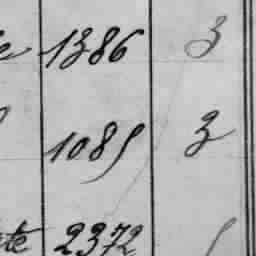 1386 3
1085 3
2372